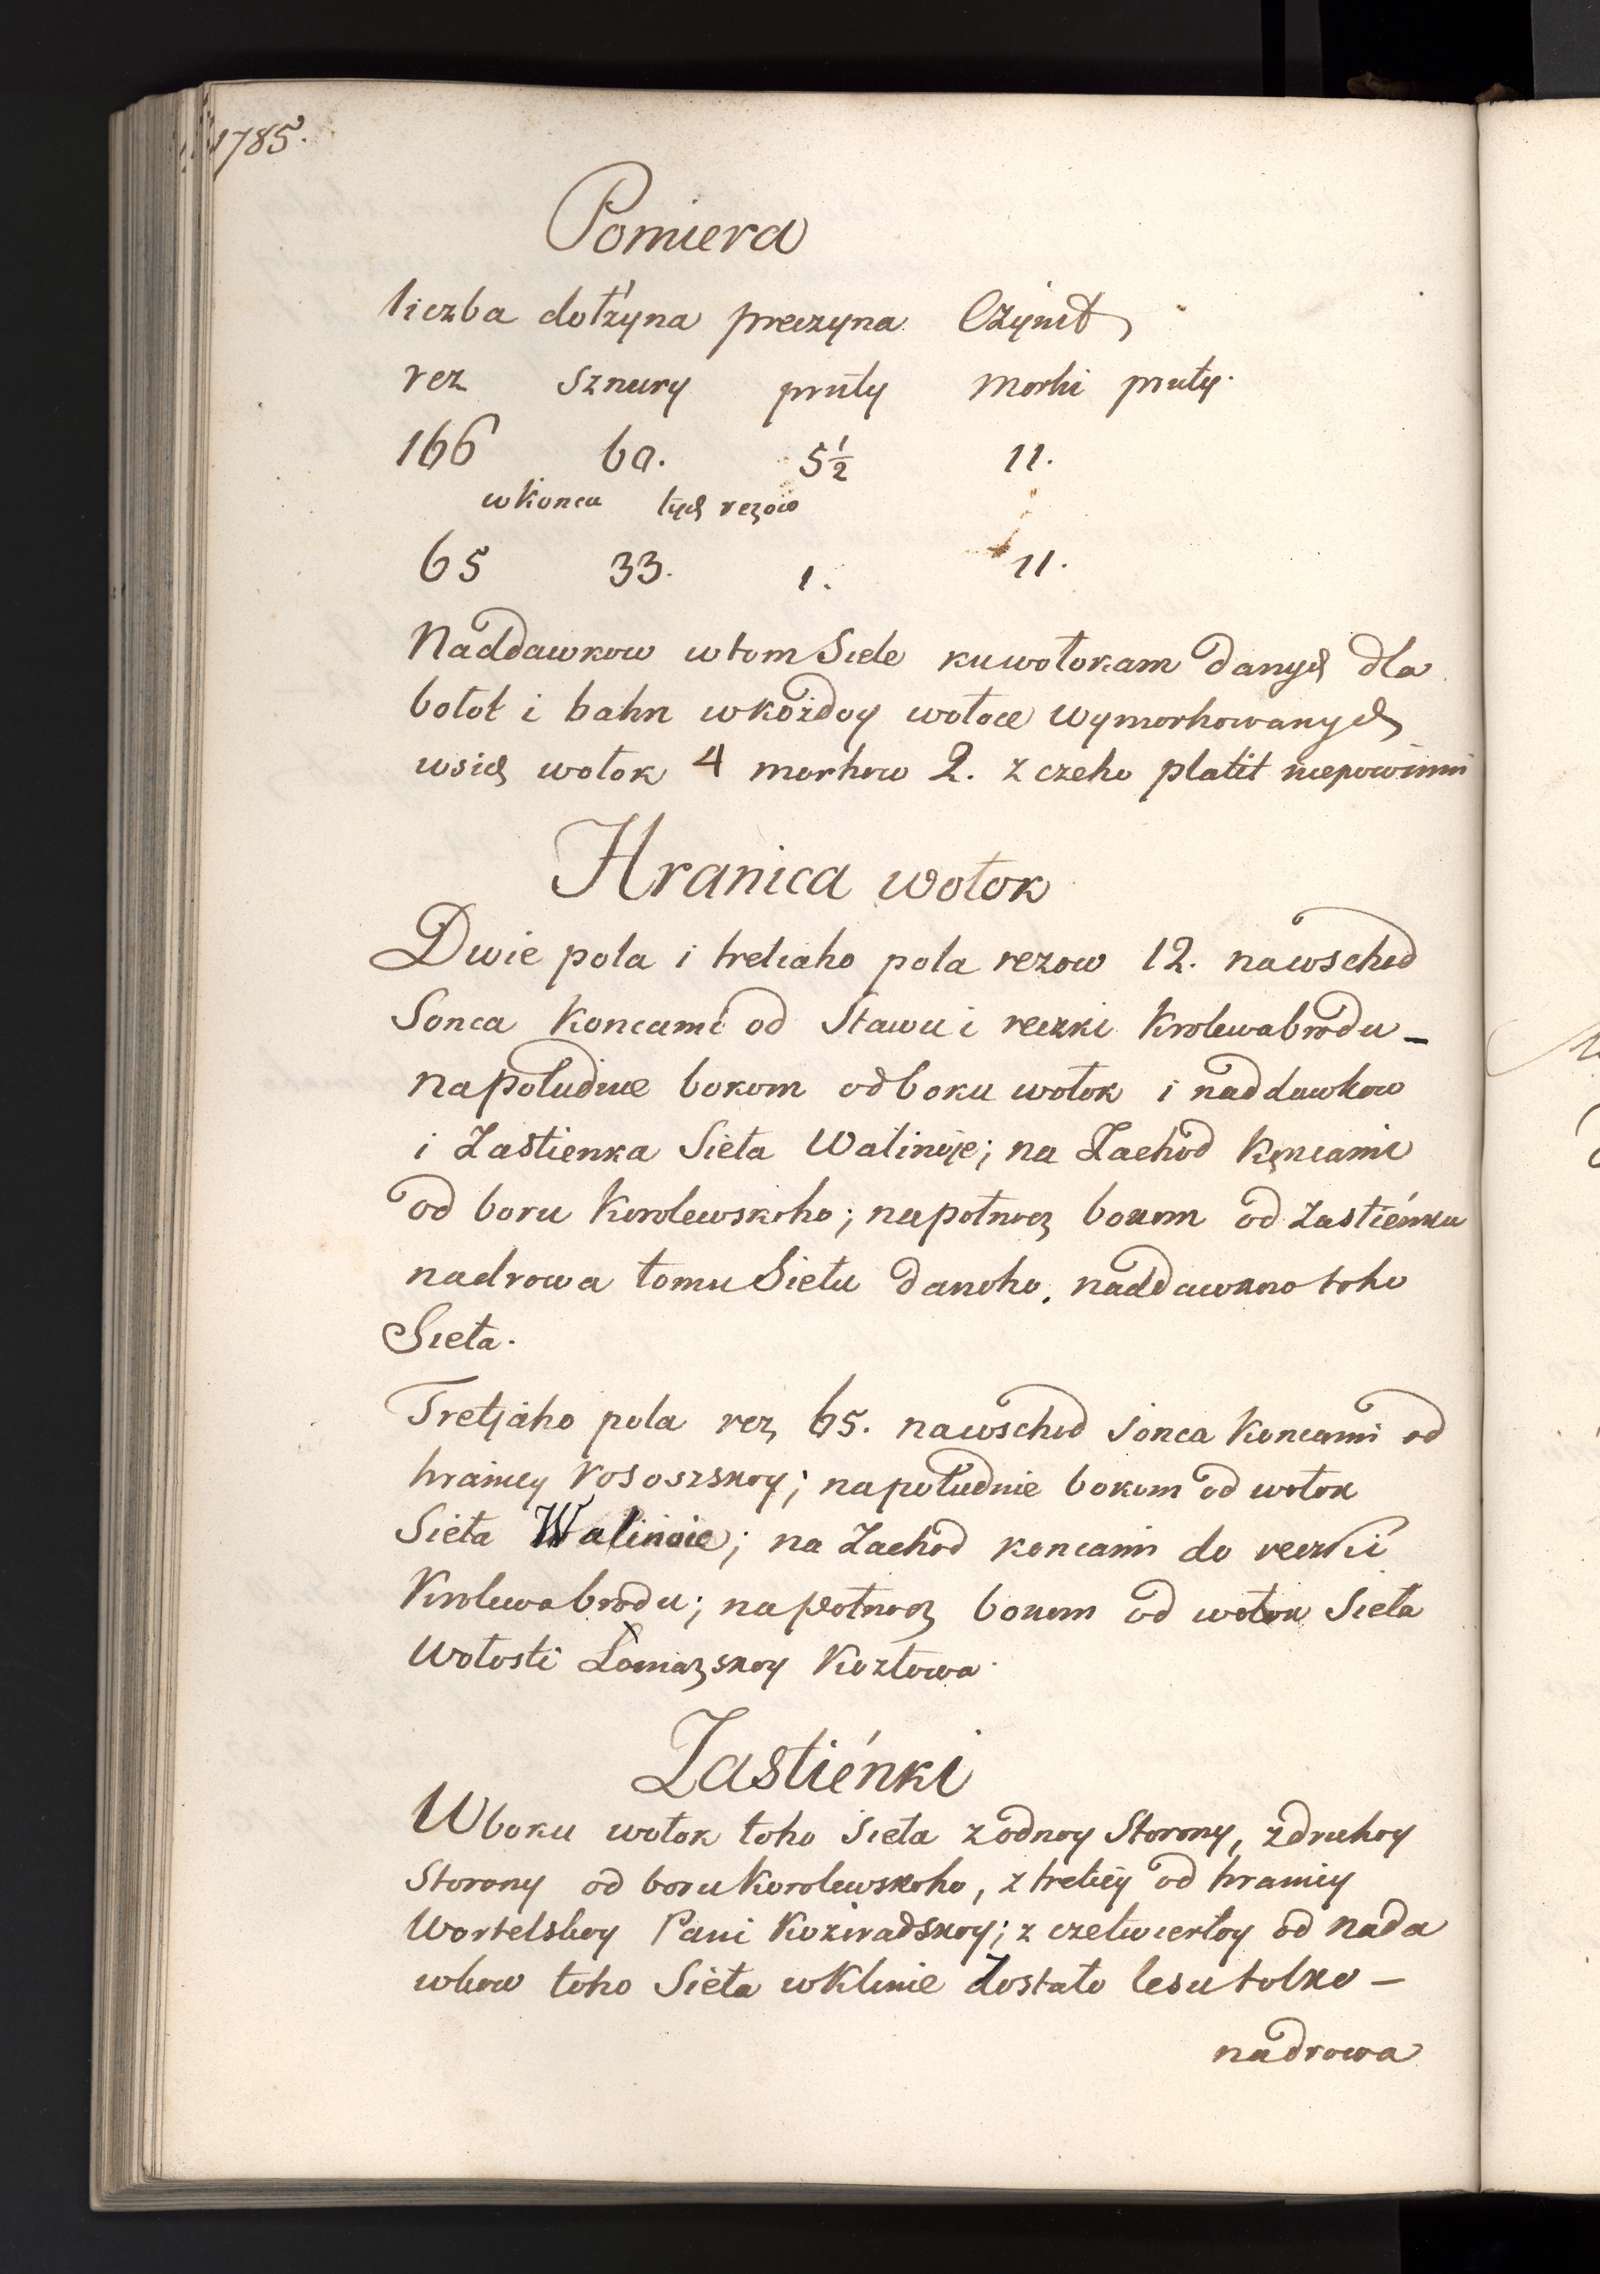 1785.
Pomiera
liczba dołżyna preczyna Czynit
rez sznury pruty morhi pruty.
166 60. 5½ 11.
wkonca tych rezow
65 33. 1. 11.
Naddawkow wtom Siele kuwołokam danych dla
bołot i bahn wkożdoy wołoce wymorhowanych
wsich wołok 4 morhow 2. z czeho platit niepowinni
Hranica wołok
Dwie pola i tretiaho pola rezow 12. nawschod
Sonca koncami od Stawu i reczki Krolewabrodu _
napołudnie bokom odboku wołok i naddawkow
i Zastienka Sieła Walinoje; na Zachod koncami
od boru Korolewskoho; napołnocz bokom od Zastiénku
nadrowa tomu Siełu danoho. naddawkow toho
Sieła.
Tretjaho pola rez 65. nawschod sonca koncami od
hranicy Rososzskoy; napołudnie bokom od wołok
Sieła Walinoie; na Zachod koncami do reczki
Krolewabrodu; napołnocz bokom od wołok Sieła
Wołosti Łomazskoy Kozłowa.
Zastiénki
Wboku wołok toho Sieła zodnoy Storony, zdruhoy
Storony od boru Korolewskoho, z tretiey od hranicy
Wortelskoy Pani Koziradskoy; z czetwiertoy od nada
wkow toho Sieła wKlinie Zostało lesu tolko –
nadrowa